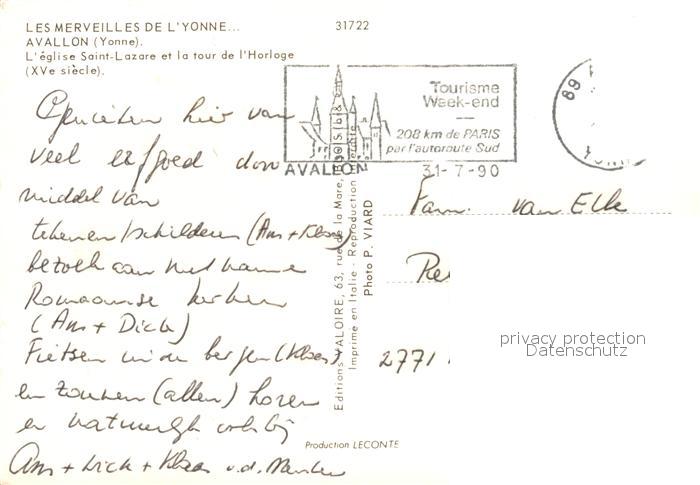 LES MERVEILLES DE L'YONNE...
AVALLON (Yonne).
L'église Saint-Lazare et la tour de l'Horloge
(XVe siècle).
31722
Tourisme
Week-end
208 km de PARIS
par l'autoroute Sud
AVALLON
31-7-90
89
Genieten hier van
veel erfgoed door
middel van
tekenen/schilderen (Ans + Klaas)
bezoek aan
Romaanse kerken
(Ans + Dick)
Fietsen in de bergen (Klaas)
en zonnen (allen) horen
er natuurlijk ook bij
Ans + Dick + Klaas v.d.
Editions VALOIRE, 63, rue de la Mare,
Imprimé en Italie - Reproduction
Photo P. VIARD
Fam. van Elk
2771
Production LECONTE
privacy protection
Datenschutz